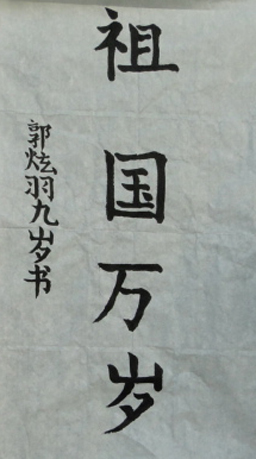 祖国万岁
郭炫羽九岁书